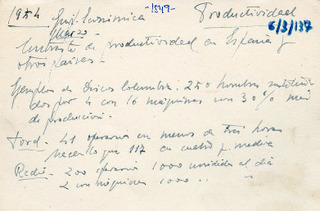 1954 -1547- Productividad
Guí. Económica
Marzo 6/3/137
Contraste de productividad en España y
otros países -
Ejemplos de Discos Columbia. 250 hombres sustituidos
por 4 con 16 máquinas con 30% más
de producción.
Ford. 41 operarios en menos de tres horas
hacen lo que 117 en cuatro y media
Radio. 200 operarios 1000 unidades al día
2 con máquinas 1000 " "